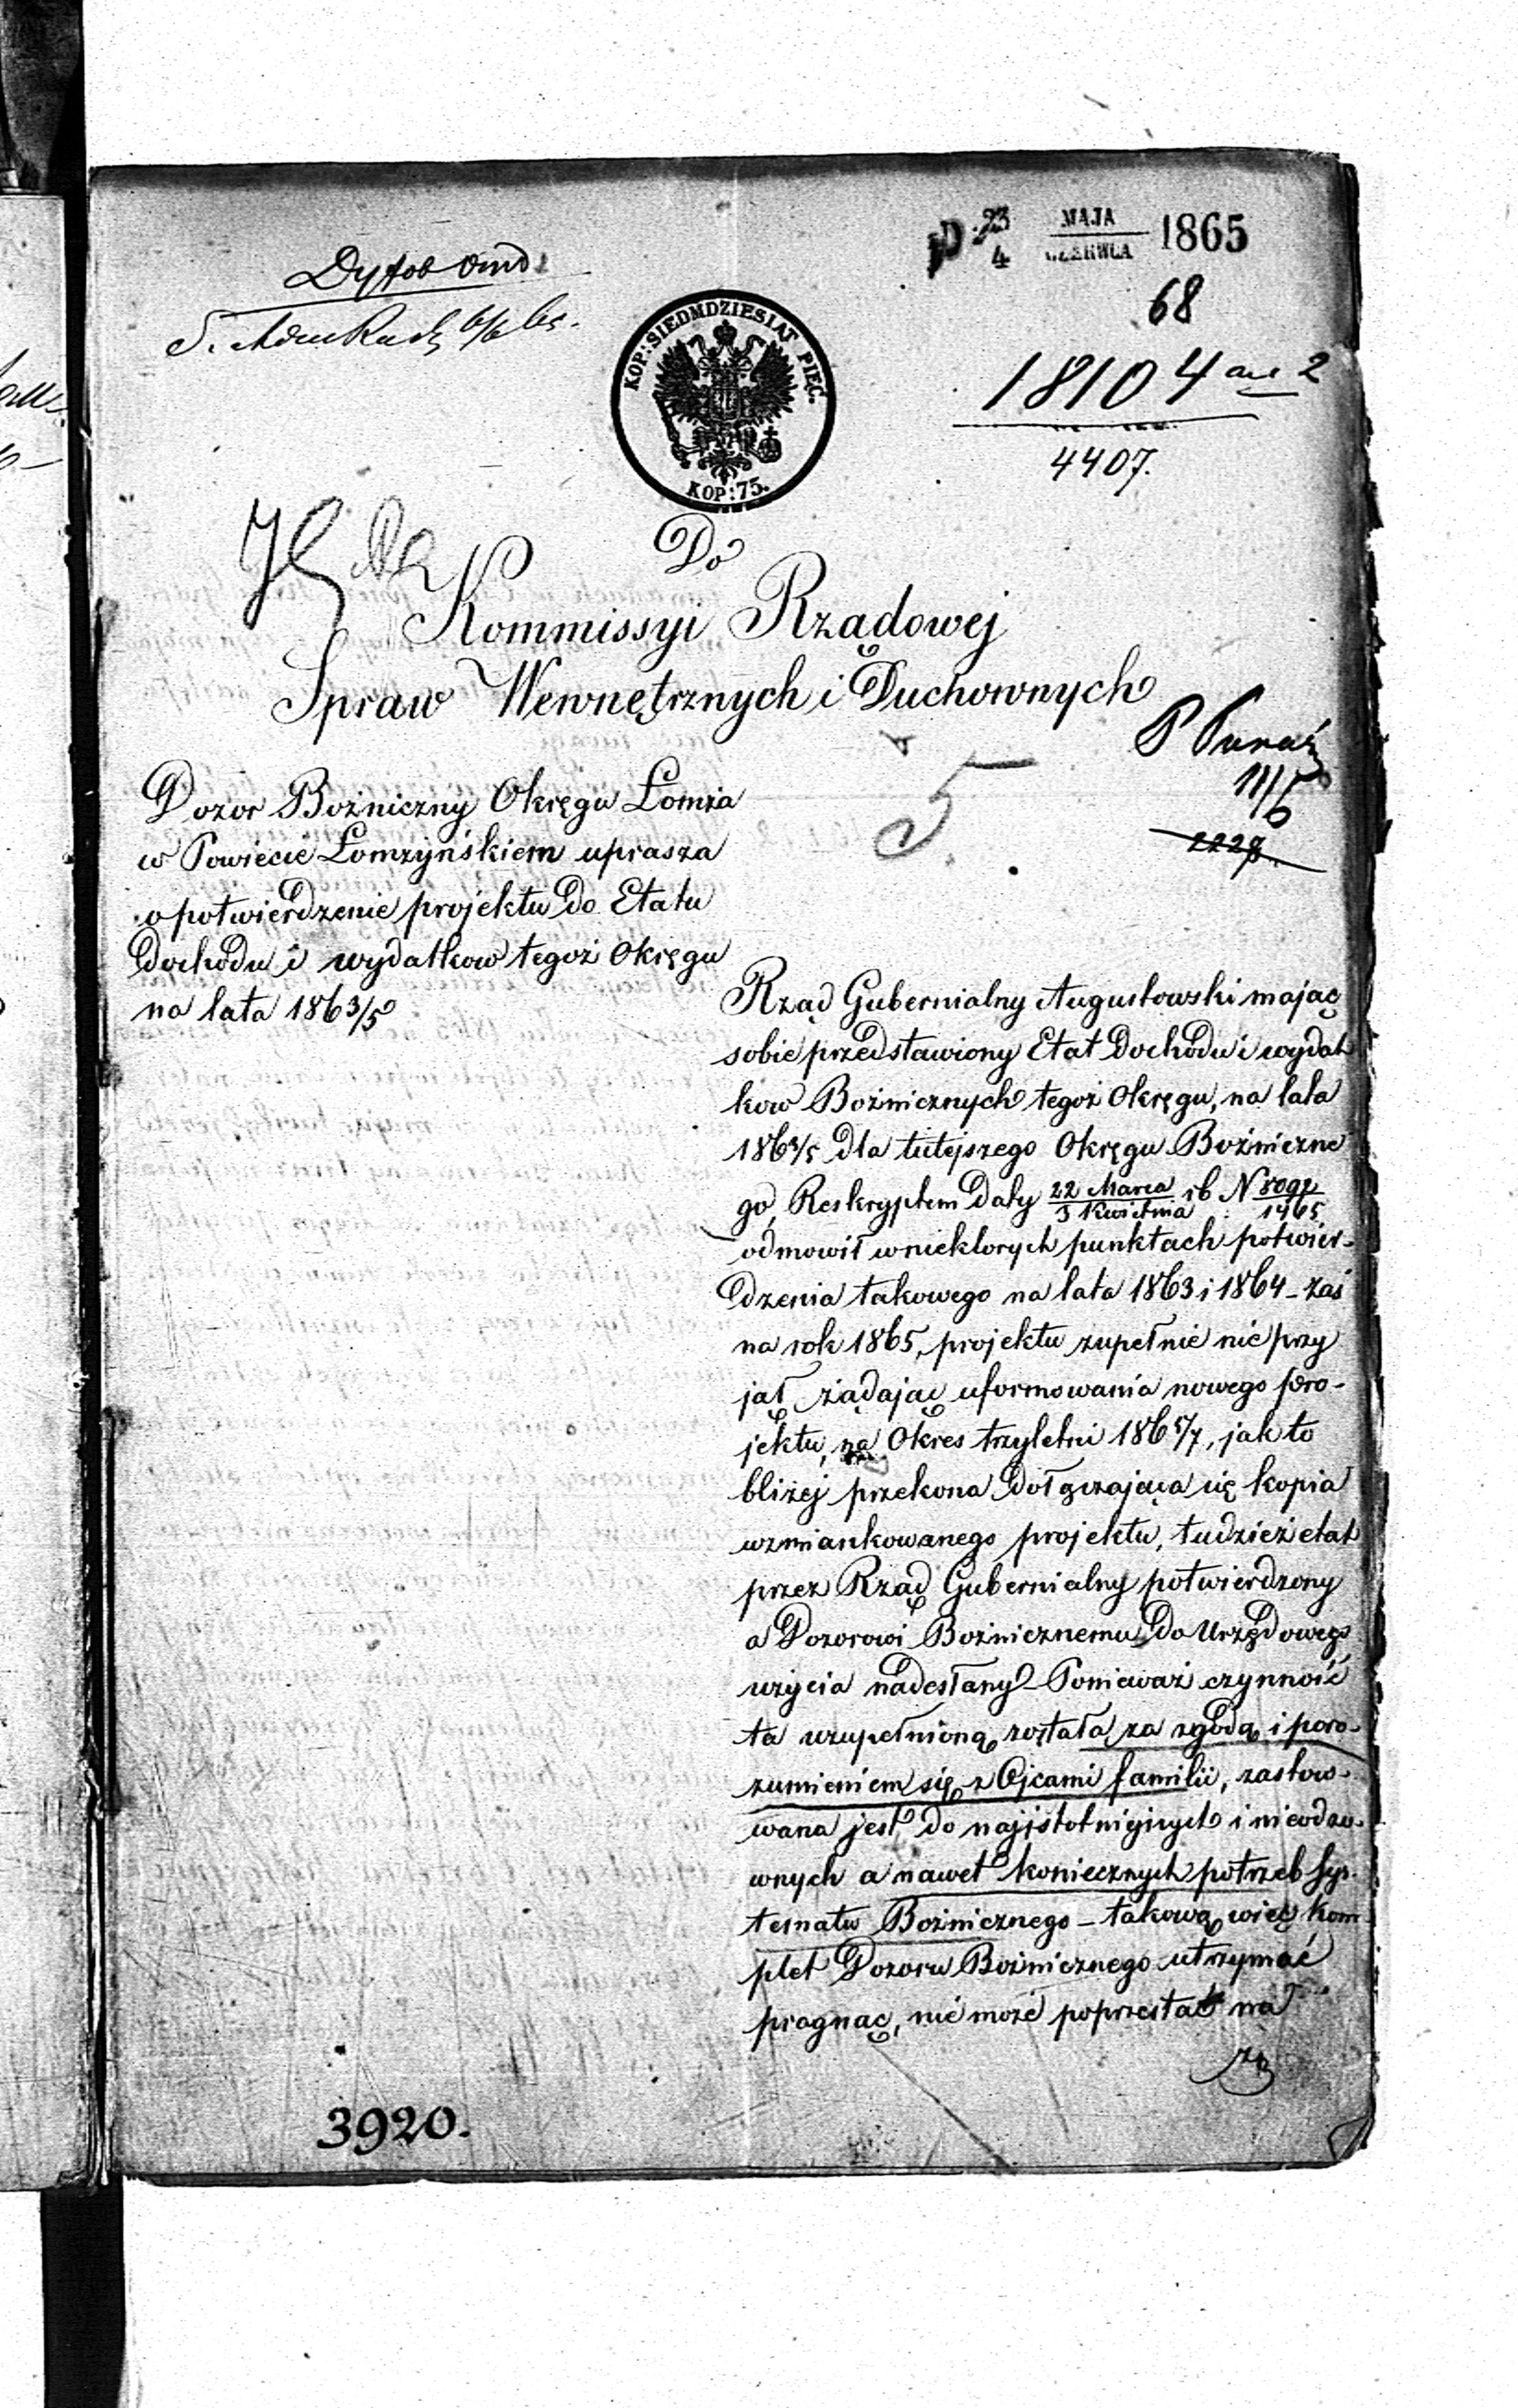 23 MAJA
4 CZERWCA 1865
68
18104
2
4407.
KOP: SIEDMDZIESIĄT PIĘĆ.
KOP: 75.
Do
Kommissyi Rządowej
Spraw Wewnętrznych i Duchownych
11/6
2228.
5.
Dozor Bożniczny Okręgu Łomża
w Powiecie Łomżyńskiem uprasza
o potwierdzenie projektu do Etatu
dochodu i wydatkow tegoż Okręgu
na lata 1863/5
Rząd Gubernialny Augustowski mając
sobie przedstawiony Etat dochodu i wydat
kow Bożnicznych tegoż Okręgu, na lata
1863/5 dla tutejszego Okręgu Bożniczne
go, Reskryptem daty 22 Marca / 3 Kwietnia rb N 1465
odmowił w niektorych punktach potwier-
dzenia takowego na lata 1863 i 1864 – zaś
na rok 1865, projektu zupełnie nie przy
jął żądając uformowania nowego pro-
jektu, na Okres trzyletni 1865/7, jak to
bliżej przekona dołączająca się kopia
wzmiankowanego projektu, tudzież etat
przez Rząd Gubernialny potwierdzony
a Dozorowi Bożnicznemu do Urzędowego
użycia nadesłany – Ponieważ czynność
ta uzupełnioną została za zgodą i poro-
zumieniem się z Ojcami familii, zastoso-
wana jest do najistotniejszych i
a nawet koniecznych potrzeb Sys-
tematu Bożnicznego – takową więc kom
plet Dozoru Bożnicznego utrzymać
pragnąc, nie może poprzestać na
3920.